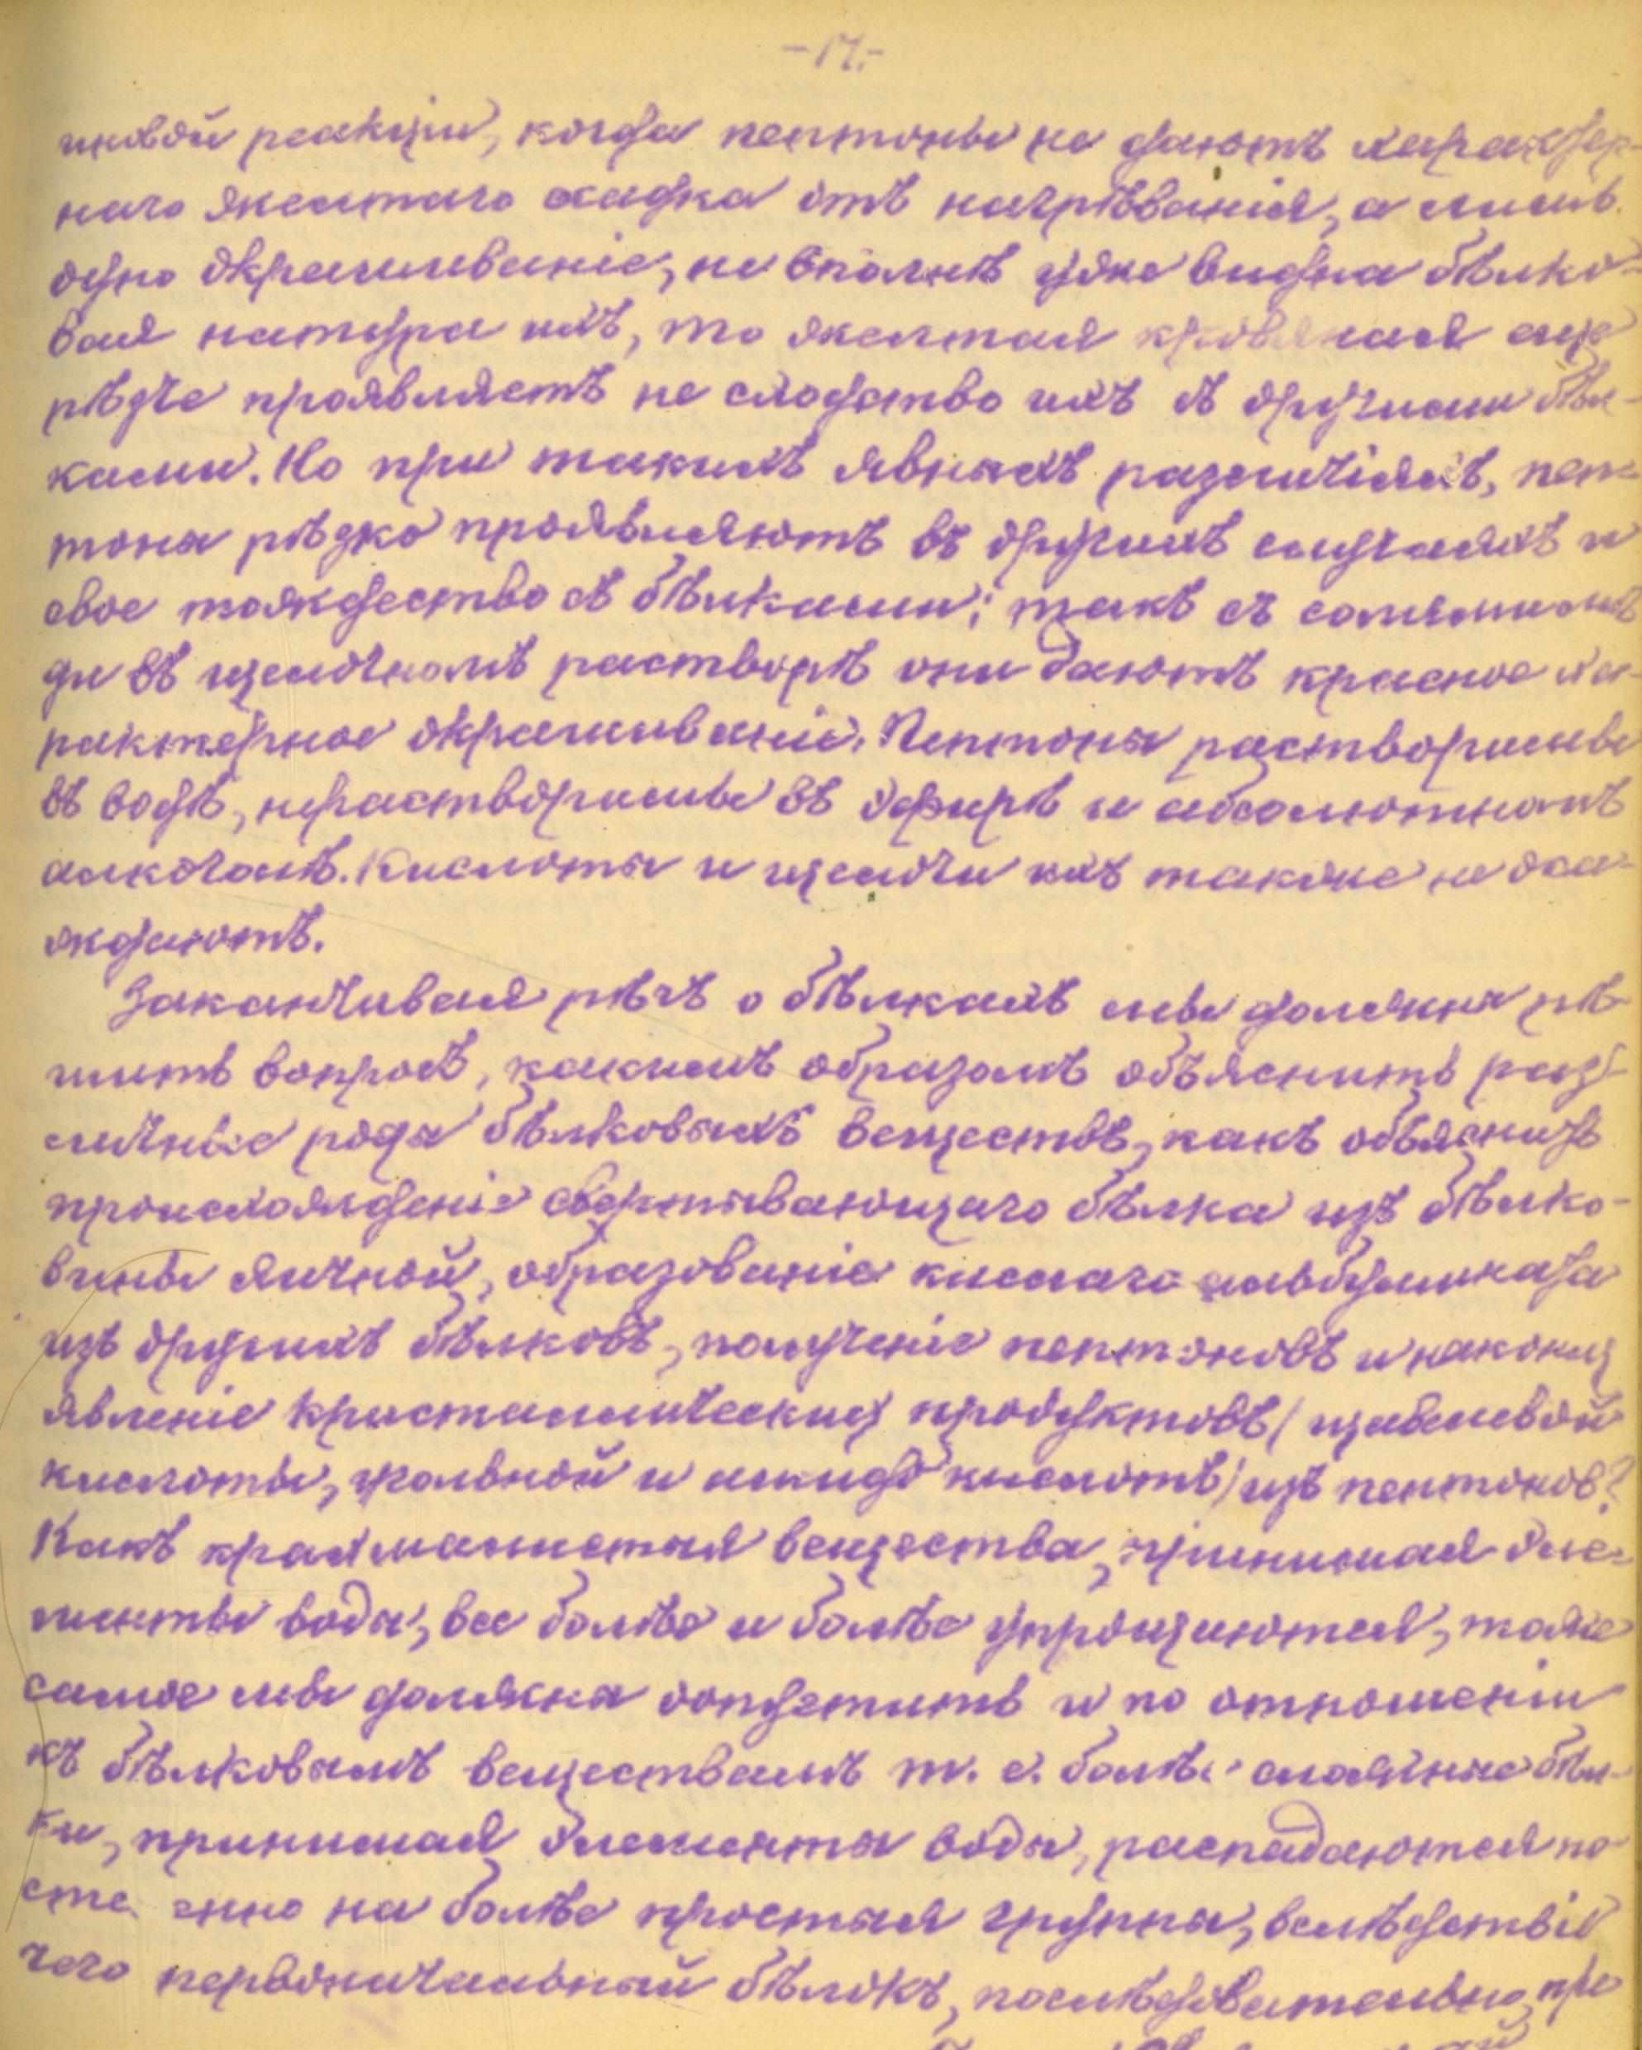 -17.-
иновой реакціи, когда пептоны не даютъ характер-
наго желтаго осадка отъ нагрѣванія, а лишь
одно окрашиваніе, не вполнѣ уже видна бѣлко-
вая натура ихъ, то желтая кровяная еще
рѣзче проявляетъ не сходство ихъ съ другими бѣл-
ками. Но при такихъ явныхъ различіяхъ, пеп-
тоны рѣзко проявляютъ въ другихъ случаяхъ и
свое тождество съ бѣлками; такъ съ солями мѣ
ди въ щелочномъ растворѣ они даютъ красное ха-
рактерное окрашиваніе. Пептоны растворимы
въ водѣ, нерастворимы въ эфирѣ и абсолютномъ
алкоголѣ. Кислоты и щелочи ихъ также не оса-
ждаютъ.
Заканчивая рѣчь о бѣлкахъ мы должны рѣ-
шить вопросъ, какимъ образомъ объяснить раз-
личные роды бѣлковыхъ веществъ, какъ объяснить
происхожденіе свертывающаго бѣлка изъ бѣлко-
вины яичной, образованіе кислаго альбумината
изъ другихъ бѣлковъ, полученіе пептоновъ и наконец
явленіе кристаллическихъ продуктовъ (щавелевой
кислоты, угольной и амидо кислотъ) изъ пептонов?
Какъ крахмалистыя вещества, принимая эле-
менты воды, все болѣе и болѣе упрощаются, тоже
самое мы должны допустить и по отношенію
къ бѣлковымъ веществамъ т. е. болѣе сложные бѣл-
ки, принимая элементы воды, распадаются по-
сте енно на болѣе простыя группы, вслѣдствіе
чего первоначальный бѣлокъ, послѣдовательно, пре